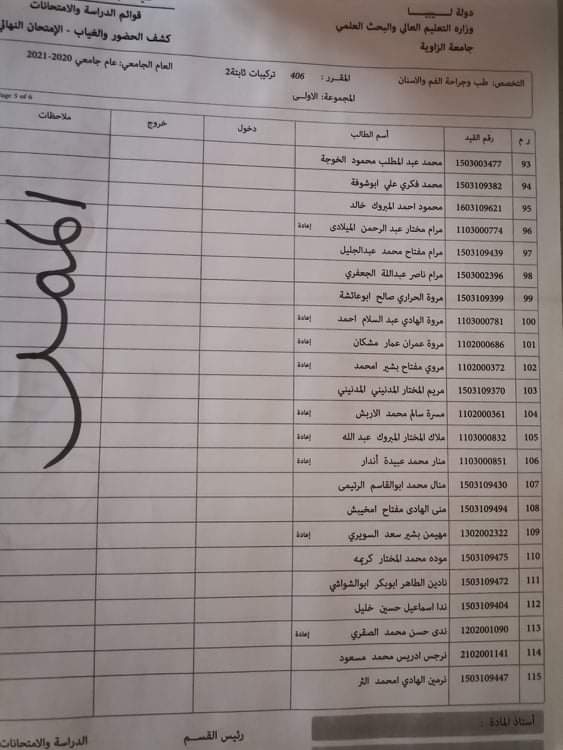 دولة ليبيا
وزارة التعليم العالي والبحث العلمي
جامعة الزاوية
قوائم الدراسة والامتحانات
كشف الحضور والغياب - الإمتحان النهائي
العام الجامعي: عام جامعي 2020-2021
التخصص: طب وجراحة الفم والأسنان
المقرر: 406 تركيبات ثابتة2
المجموعة: الاولى
Page 5 of 6
ر م رقم القيد أسم الطالب دخول خروج ملاحظات
93 1503003477 محمد عبد المطلب محمود الخوجة
94 1503109382 محمد فكري علي ابوشوفة
95 1603109621 محمود احمد المبروك خالد
96 1103000774 مرام مختار عبد الرحمن الميلادى إعادة
97 1503109439 مرام مفتاح محمد عبدالجليل
98 1503002396 مرام ناصر عبداللة الجعفري
99 1503109399 مروة الحراري صالح ابوعائشة
100 1103000781 مروة الهادي عبد السلام احمد إعادة
101 1102000686 مروة عمران عمار مشكان إعادة
102 1102000372 مروي مفتاح بشير امحمد إعادة
103 1503109370 مريم المختار المدنيني المدنيني
104 1102000361 مسرة سالم محمد الاربش إعادة
105 1103000832 ملاك المختار المبروك عبد الله إعادة
106 1103000851 منار محمد عبيدة أندار إعادة
107 1503109430 منال محمد ابوالقاسم الرتيمى
108 1503109494 منى الهادى مفتاح امخيبش
109 1302002322 مهيمن بشير سعد السويري إعادة
110 1503109475 موده محمد المختار كريمه
111 1503109472 نادين الطاهر ابوبكر ابوالشواشي
112 1503109404 ندا اسماعيل حسين خليل
113 1202001090 ندى حسن محمد الصقري إعادة
114 2102001141 نرجس ادريس محمد مسعود
115 1503109447 نرمين الهادي امحمد الثر
أستاذ المادة :
رئيس القسم
الدراسة والامتحانات